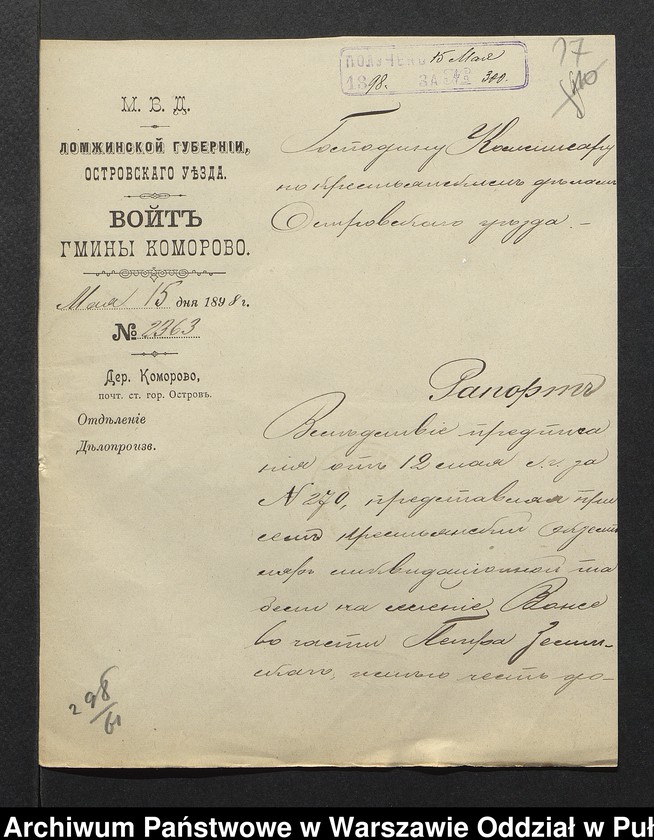 ПОЛУЧЕНО 15 Мая
1898 г. ЗА № 300.
17
М. В. Д.
ЛОМЖИНСКОЙ ГУБЕРНІИ,
ОСТРОВСКАГО УѢЗДА.
ВОЙТЪ
ГМИНЫ КОМОРОВО.
Мая 15 дня 1898 г.
№ 2363
Дер. Коморово,
почт. ст. гор. Островъ.
Отдѣленіе
Дѣлопроизв.
Господину Комисару
по крестьянскимъ дѣламъ
Островскаго уѣзда. –
Рапортъ
Вслѣдствіе предписа
нія отъ 12 мая с. г. за
№ 270, представляя при
семъ крестьянскій экзем
пляръ ликвидаціонной та
бели на имѣніе
во части Петра
имѣю честь до-
298/61
Archiwum Państwowe w Warszawie Oddział w Puł